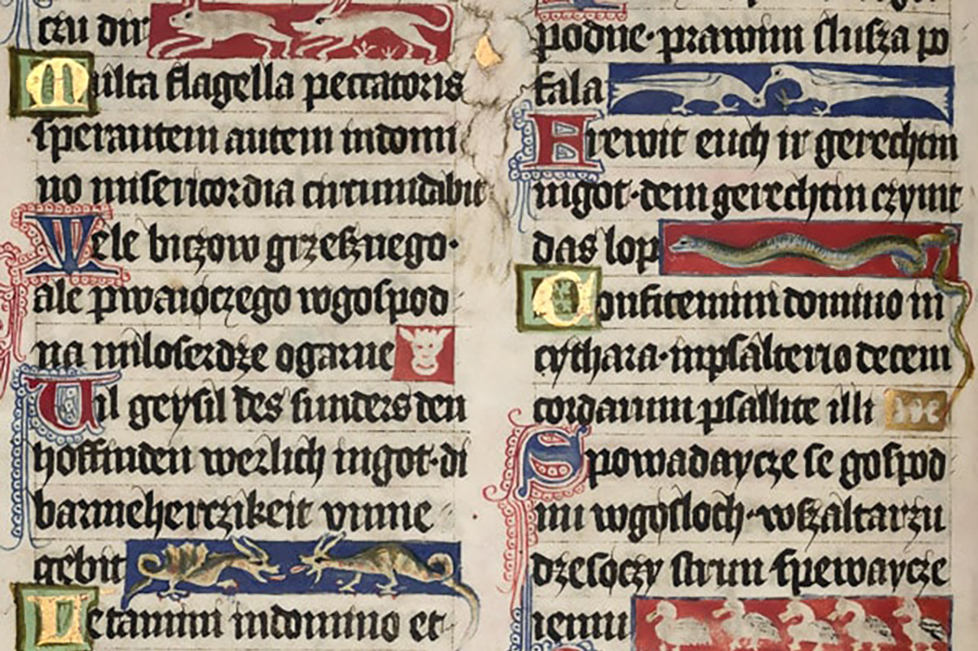 czu dir
Multa flagella peccatoris
sperantem autem in domi
no misericordia circumdabit
Wele biczow grzesznego·
ale pwaiøczego wgospod
na miloserdze ogarne
Vil geysil des sunders den
hoffinden werlich in got·di
barmeherczikeit vmme
gebit
Letamini in domino et
podne· prawim slusza po
fala
Frewit euch ir gerechtin
in got·dem gerechtin czymt
das lop
Confitemini domino in
cythara·in psalterio decem
cordarum psallite illi
Spowadaycze se gospod
nu wgøsloch·wszaltarzu
dzesøczy strun spewaycze
iemu